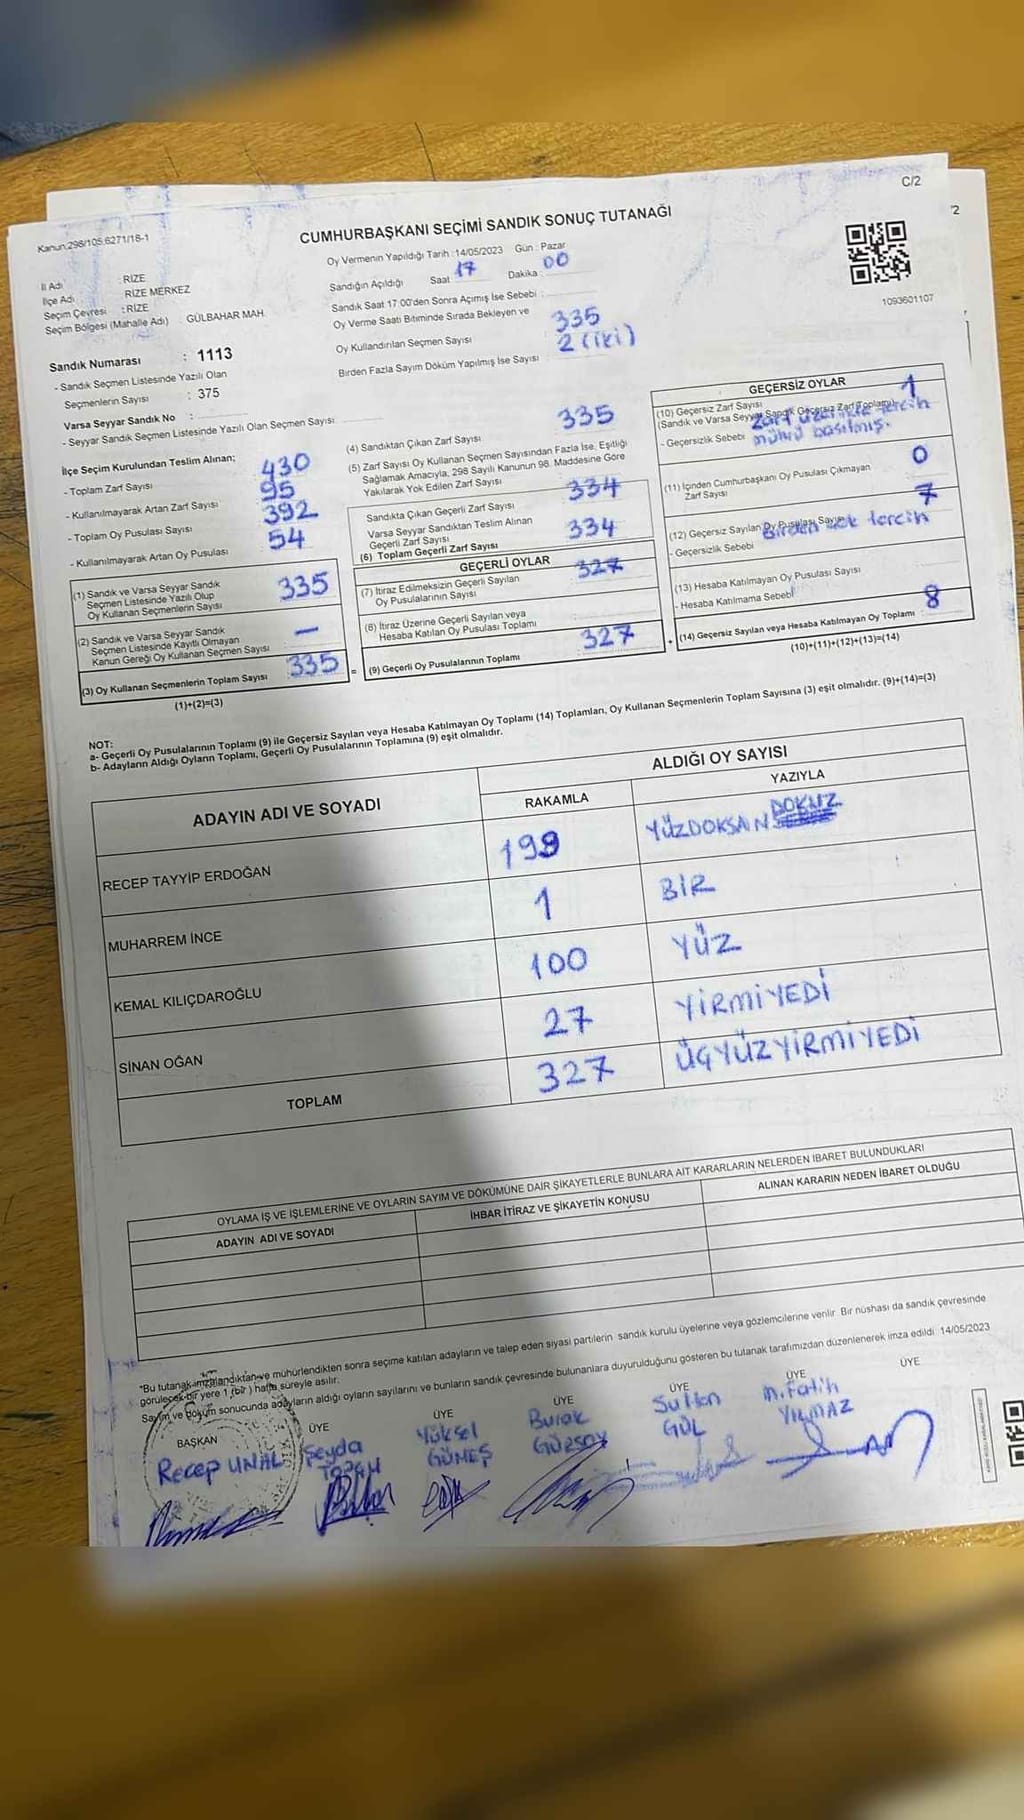 C/2
Kanun:298/105 6271/18-1
CUMHURBAŞKANI SEÇİMİ SANDIK SONUÇ TUTANAĞI
İl Adı : RİZE
İlçe Adı RİZE MERKEZ
Seçim Çevresi : RİZE
Seçim Bölgesi (Mahalle Adı) GÜLBAHAR MAH.
Oy Vermenin Yapıldığı Tarih : 14/05/2023 Gün : Pazar
Sandığın Açıldığı Saat 17 Dakika : 00
Sandık Saat 17:00'den Sonra Açımış İse Sebebi :
Oy Verme Saati Bitiminde Sırada Bekleyen ve
Oy Kullandırılan Seçmen Sayısı 335
Birden Fazla Sayım Döküm Yapılmış İse Sayısı : 2 (iki)
1093601107
Sandık Numarası : 1113
- Sandık Seçmen Listesinde Yazılı Olan
Seçmenlerin Sayısı : 375
Varsa Seyyar Sandık No :
- Seyyar Sandık Seçmen Listesinde Yazılı Olan Seçmen Sayısı:
İlçe Seçim Kurulundan Teslim Alınan;
- Toplam Zarf Sayısı 430
- Kullanılmayarak Artan Zarf Sayısı 95
- Toplam Oy Pusulası Sayısı 392
- Kullanılmayarak Artan Oy Pusulası 54
(1) Sandık ve Varsa Seyyar Sandık
Seçmen Listesinde Yazılı Olup
Oy Kullanan Seçmenlerin Sayısı 335
(2) Sandık ve Varsa Seyyar Sandık
Seçmen Listesinde Kayıtlı Olmayan
Kanun Gereği Oy Kullanan Seçmen Sayısı —
(3) Oy Kullanan Seçmenlerin Toplam Sayısı 335
(1)+(2)=(3)
(4) Sandıktan Çıkan Zarf Sayısı 335
(5) Zarf Sayısı Oy Kullanan Seçmen Sayısından Fazla İse, Eşitliği
Sağlamak Amacıyla, 298 Sayılı Kanunun 98. Maddesine Göre
Yakılarak Yok Edilen Zarf Sayısı
Sandıkta Çıkan Geçerli Zarf Sayısı 334
Varsa Seyyar Sandıktan Teslim Alınan
Geçerli Zarf Sayısı
(6) Toplam Geçerli Zarf Sayısı 334
GEÇERLİ OYLAR
(7) İtiraz Edilmeksizin Geçerli Sayılan
Oy Pusulalarının Sayısı 327
(8) İtiraz Üzerine Geçerli Sayılan veya
Hesaba Katılan Oy Pusulası Toplamı
= (9) Geçerli Oy Pusulalarının Toplamı 327
GEÇERSİZ OYLAR
(10) Geçersiz Zarf Sayısı 1
(Sandık ve Varsa Seyyar Sandık Geçersiz Zarf Toplamı)
- Geçersizlik Sebebi Zarf üzerinde tercih
mührü basılmış.
(11) İçinden Cumhurbaşkanı Oy Pusulası Çıkmayan
Zarf Sayısı 0
(12) Geçersiz Sayılan Oy Pusulası Sayısı 7
- Geçersizlik Sebebi Birden çok tercih
(13) Hesaba Katılmayan Oy Pusulası Sayısı
- Hesaba Katılmama Sebebi
+ (14) Geçersiz Sayılan veya Hesaba Katılmayan Oy Toplamı 8
(10)+(11)+(12)+(13)=(14)
NOT:
a- Geçerli Oy Pusulalarının Toplamı (9) ile Geçersiz Sayılan veya Hesaba Katılmayan Oy Toplamı (14) Toplamları, Oy Kullanan Seçmenlerin Toplam Sayısına (3) eşit olmalıdır. (9)+(14)=(3)
b- Adayların Aldığı Oyların Toplamı, Geçerli Oy Pusulalarının Toplamına (9) eşit olmalıdır.
ADAYIN ADI VE SOYADI ALDIĞI OY SAYISI
RAKAMLA YAZIYLA
RECEP TAYYİP ERDOĞAN 199 YÜZDOKSAN DOKUZ
MUHARREM İNCE 1 BİR
KEMAL KILIÇDAROĞLU 100 YÜZ
SİNAN OĞAN 27 YİRMİYEDİ
TOPLAM 327 ÜÇYÜZYİRMİYEDİ
OYLAMA İŞ VE İŞLEMLERİNE VE OYLARIN SAYIM VE DÖKÜMÜNE DAİR ŞİKAYETLERLE BUNLARA AİT KARARLARIN NELERDEN İBARET BULUNDUKLARI
ADAYIN ADI VE SOYADI İHBAR İTİRAZ VE ŞİKAYETİN KONUSU ALINAN KARARIN NEDEN İBARET OLDUĞU
*Bu tutanak imzalandıktan ve mühürlendikten sonra seçime katılan adayların ve talep eden siyasi partilerin sandık kurulu üyelerine veya gözlemcilerine verilir. Bir nüshası da sandık çevresinde
görülecek bir yere 1 (bir) hafta süreyle asılır.
Sayım ve döküm sonucunda adayların aldığı oyların sayılarını ve bunların sandık çevresinde bulunanlara duyurulduğunu gösteren bu tutanak tarafımızdan düzenlenerek imza edildi. 14/05/2023
BAŞKAN ÜYE ÜYE ÜYE ÜYE ÜYE ÜYE
Recep UNAL Şeyda Yüksel GÜMEŞ Burak GÜZSOY Sultan GÜL M. Fatih YILMAZ